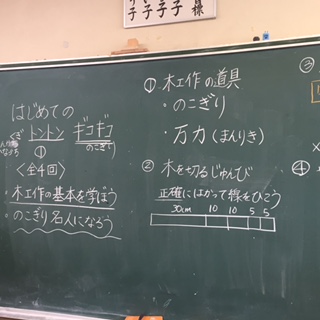 子子子子様
はじめての
くぎ トントン ギコギコ
のこぎり
①
〈全4回〉
・木工作の基本を学ぼう
・のこぎり名人になろう
① 木工作の道具
・のこぎり
・万力(まんりき)
② 木を切るじゅんび
正確にはかって線をひこう
30cm 10 10 5 5
③
④